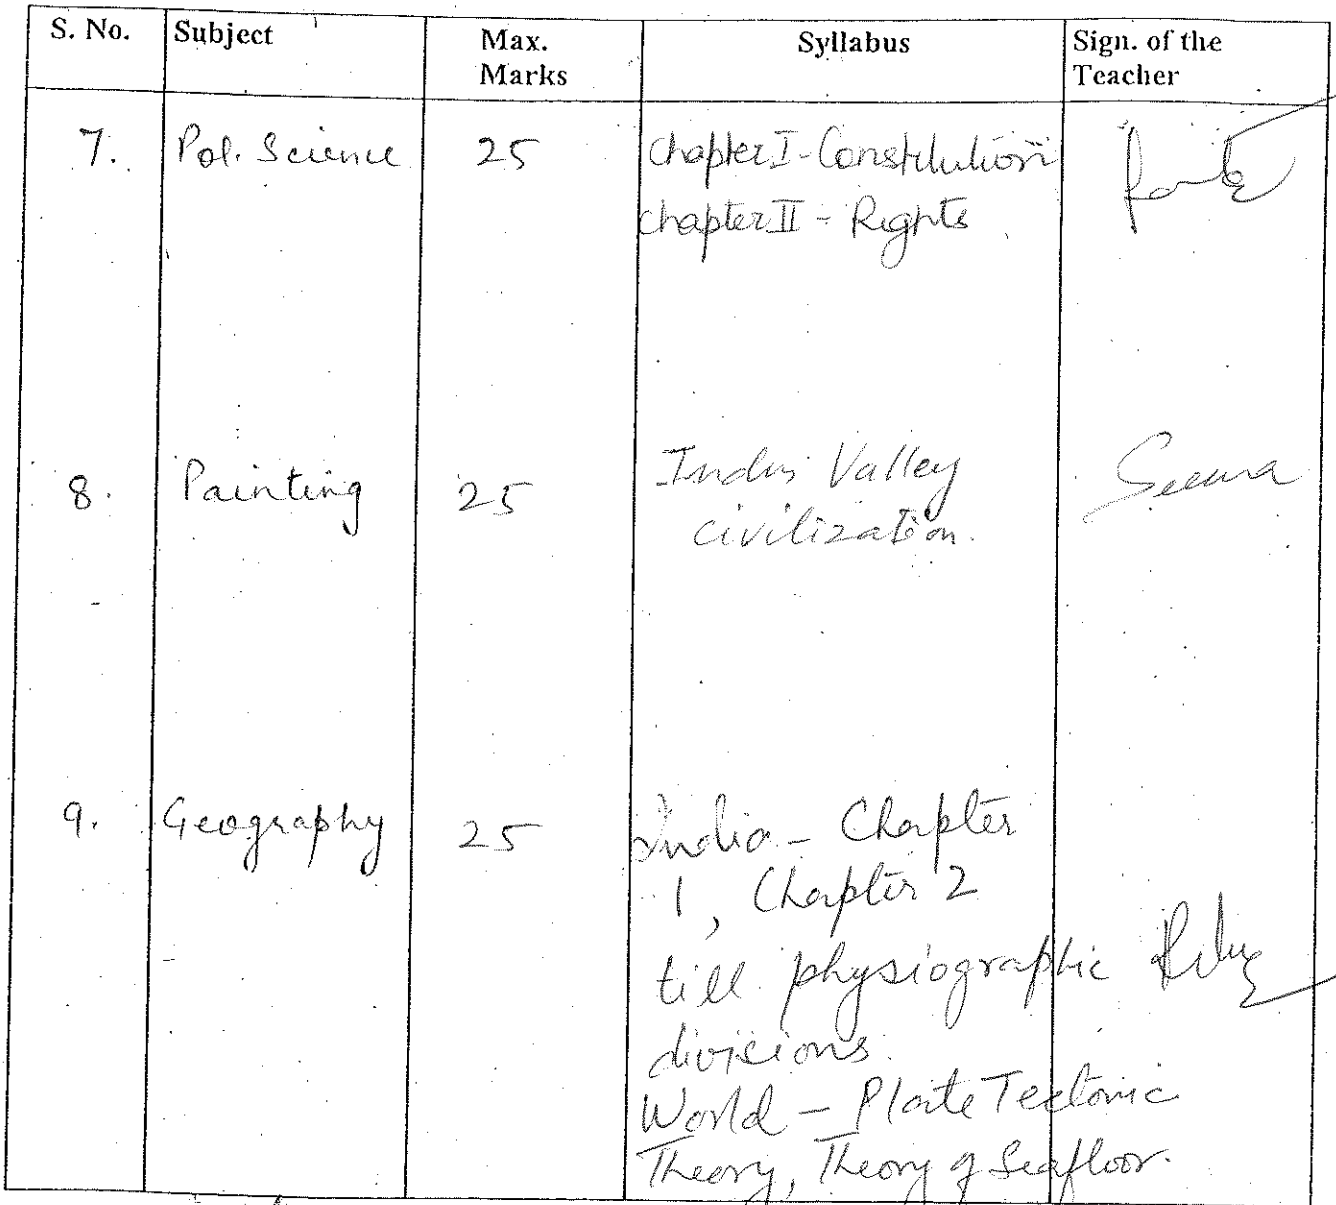 S. No. Subject Max. Marks Syllabus Sign. of the Teacher
7. Pol. Science 25 Chapter I - Constitution
Chapter II - Rights
8. Painting 25 Indus Valley Seema
civilization.
9. Geography 25 India - Chapter
1, Chapter 2
till physiographic
divisions.
World - Plate Tectonic
Theory, Theory of Seafloor.